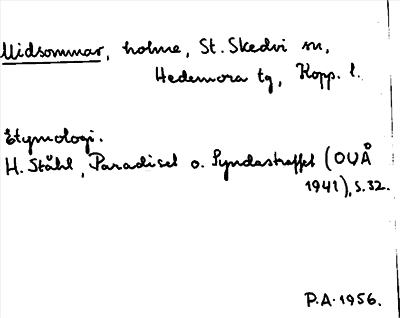 Midsommar, holme, St. Skedvi sn,
Hedemora tg, Kopp. l.
Etymologi.
H. Ståhl, Paradiset o. Syndastraffet (OUÅ
1941), s. 32.
P.A. 1956.